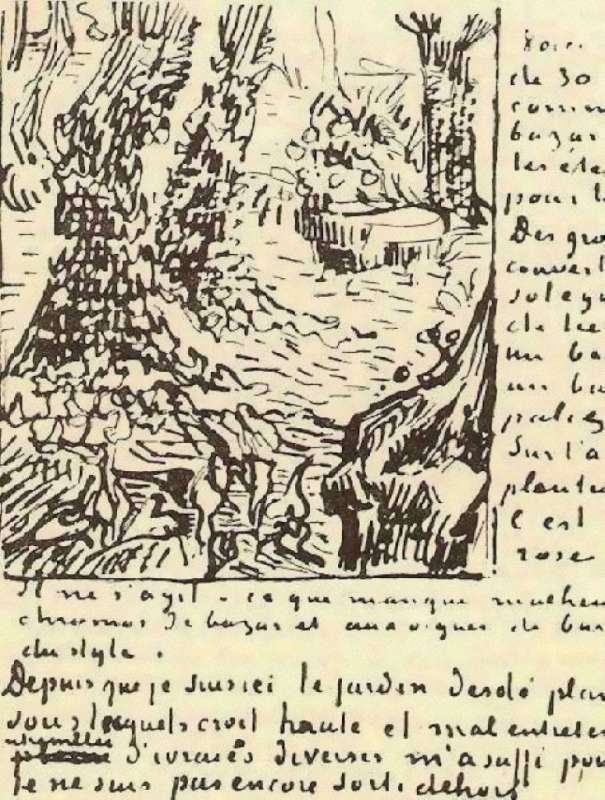 Voici
de 30
comm
bazar
les éte
pour l
Des gro
couvert
sol eg
de lie
un ba
un ba
palis
Sur l'a
plante
C est
rose
Il ne s'agit - ce que manque malheu
chromos de bazar et aux orgues de bar
du style.
Depuis que je suis ici le jardin desolé plan
sous lesquels croit haute et mal entreten
d'ivraies diverses m'a suffi pou
je ne suis pas encore sorti dehors